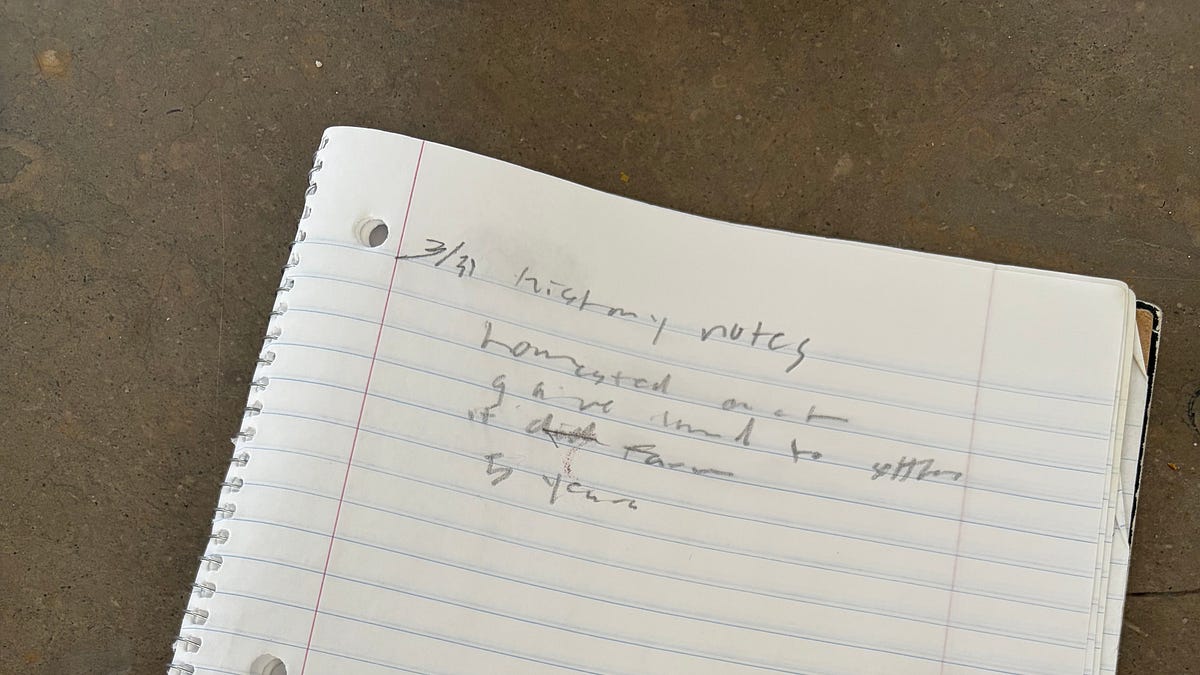 3/31 history notes
homested act
gaive land to settlers
if farm
5 years